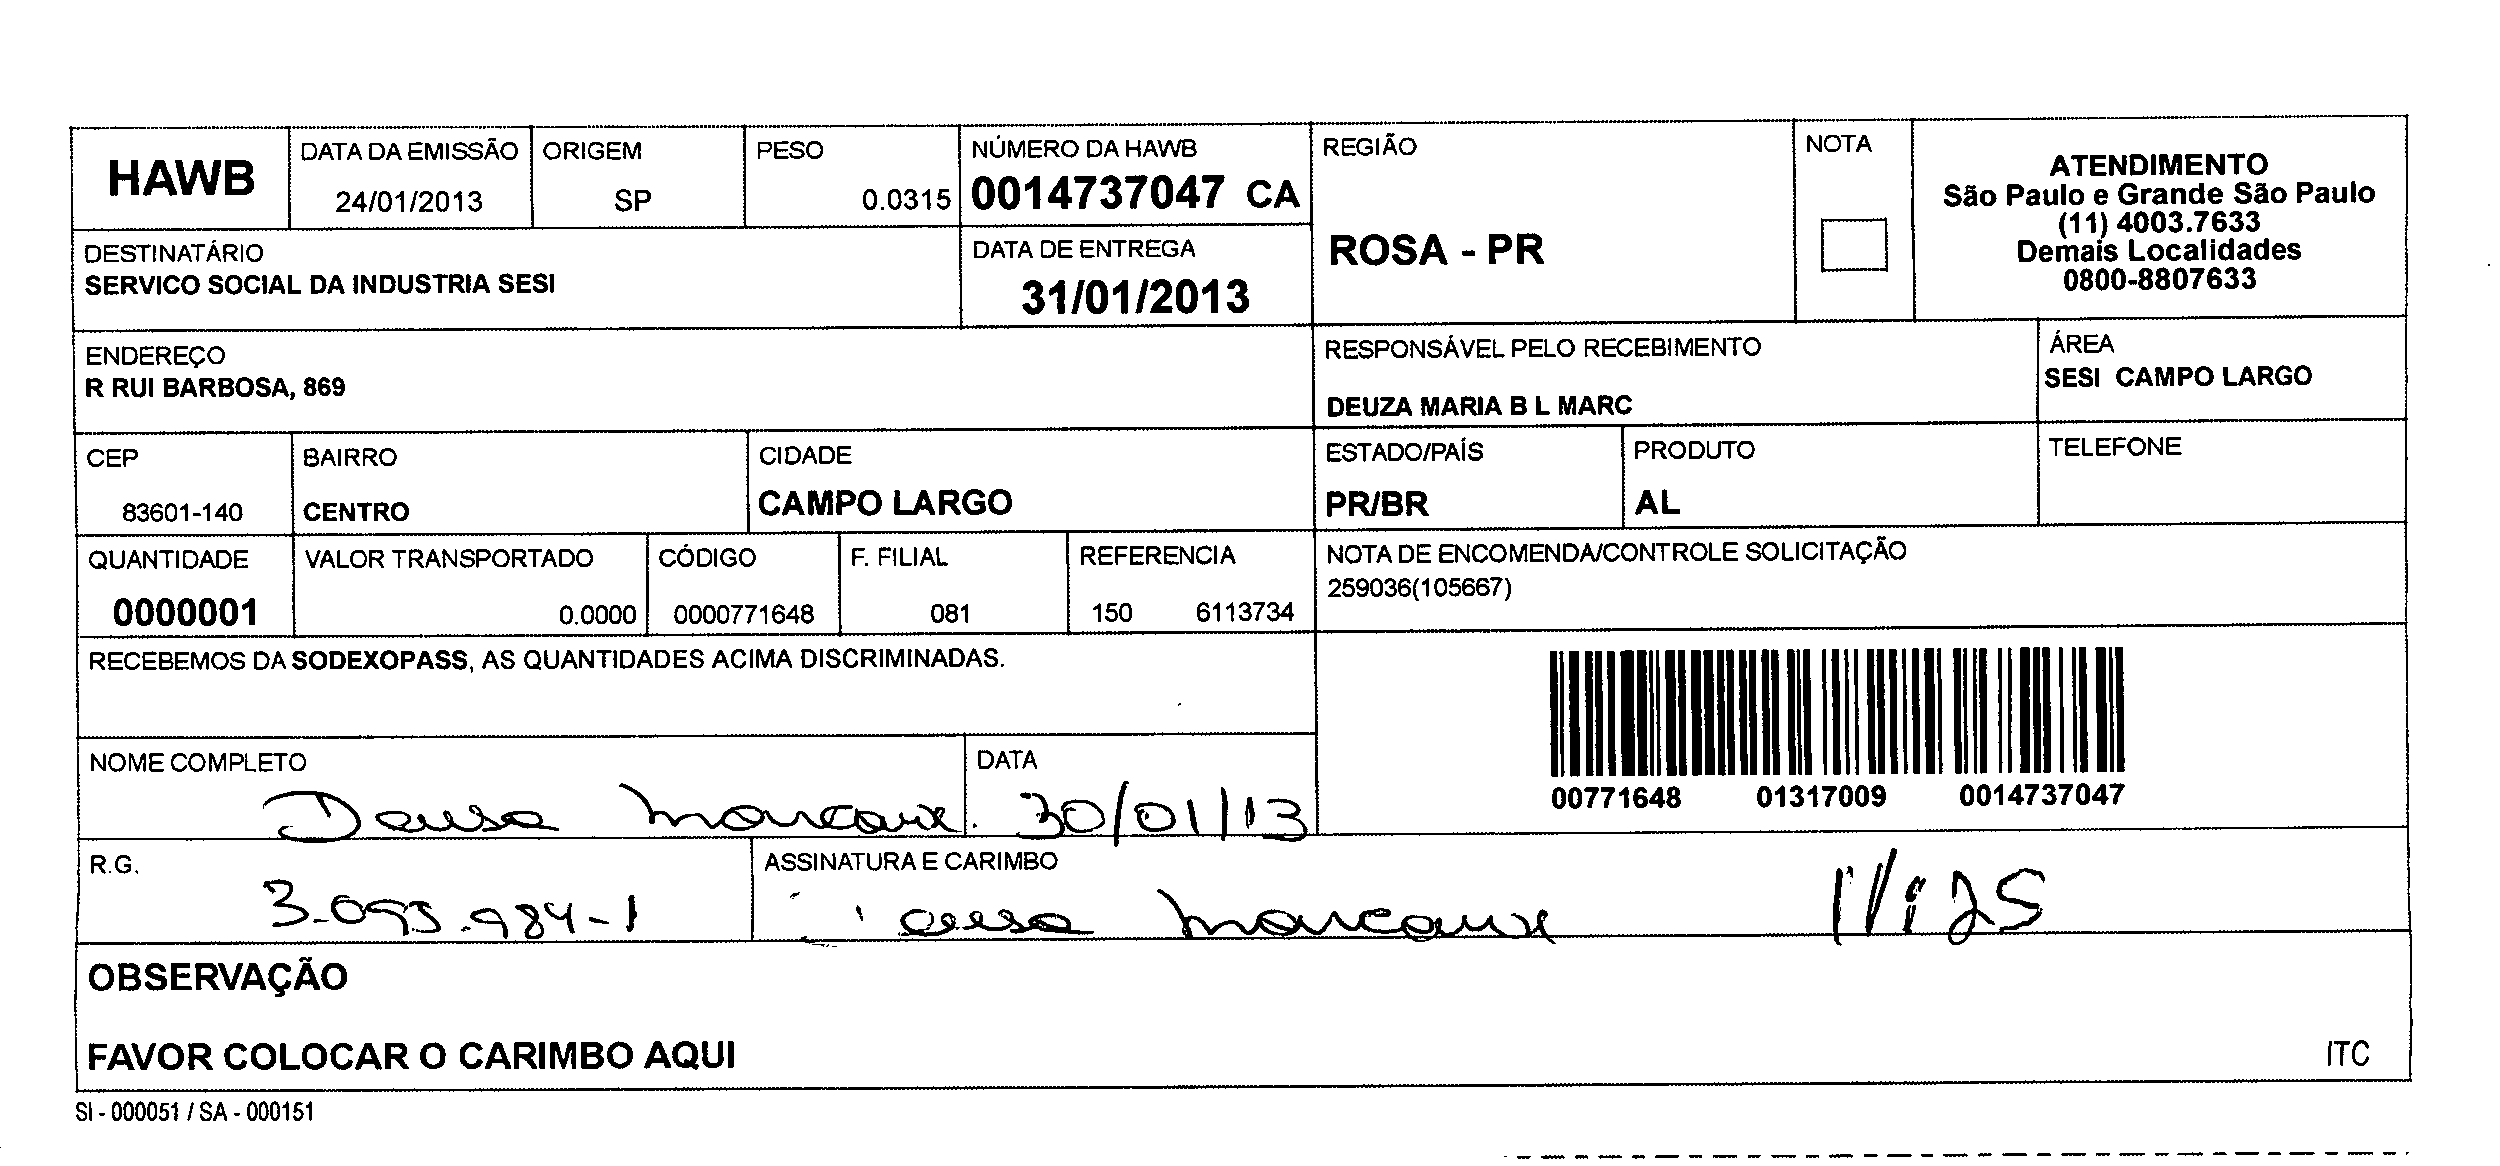 HAWB
DATA DA EMISSÃO
24/01/2013
ORIGEM
SP
PESO
0.0315
NÚMERO DA HAWB
0014737047 CA
REGIÃO
ROSA - PR
NOTA
ATENDIMENTO
São Paulo e Grande São Paulo
(11) 4003.7633
Demais Localidades
0800-8807633
DESTINATÁRIO
SERVICO SOCIAL DA INDUSTRIA SESI
DATA DE ENTREGA
31/01/2013
ENDEREÇO
R RUI BARBOSA, 869
RESPONSÁVEL PELO RECEBIMENTO
DEUZA MARIA B L MARC
ÁREA
SESI CAMPO LARGO
CEP
83601-140
BAIRRO
CENTRO
CIDADE
CAMPO LARGO
ESTADO/PAÍS
PR/BR
PRODUTO
AL
TELEFONE
QUANTIDADE
0000001
VALOR TRANSPORTADO
0.0000
CÓDIGO
0000771648
F. FILIAL
081
REFERENCIA
150 6113734
NOTA DE ENCOMENDA/CONTROLE SOLICITAÇÃO
259036(105667)
RECEBEMOS DA SODEXOPASS, AS QUANTIDADES ACIMA DISCRIMINADAS.
00771648 01317009 0014737047
NOME COMPLETO
Deusa
DATA
30/01/13
R.G.
3.093.984-1
ASSINATURA E CARIMBO
OBSERVAÇÃO
FAVOR COLOCAR O CARIMBO AQUI
ITC
SI - 000051 / SA - 000151